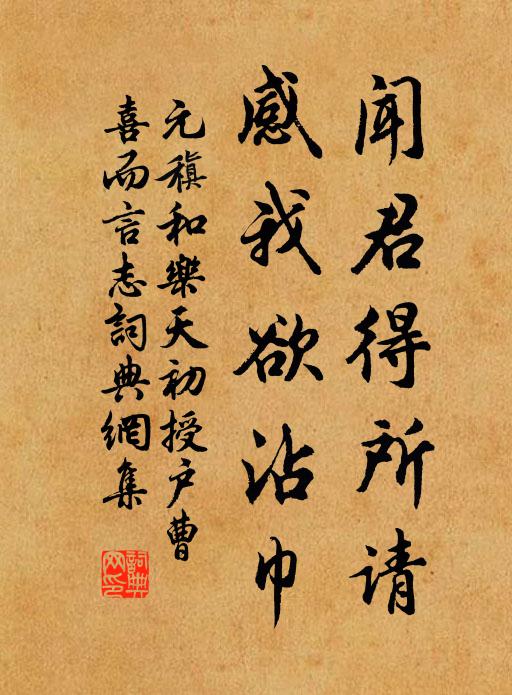 闻君得所请
感我欲沾巾
元稹和樂天初授户曹
喜而言志詞典網集
詞典網印